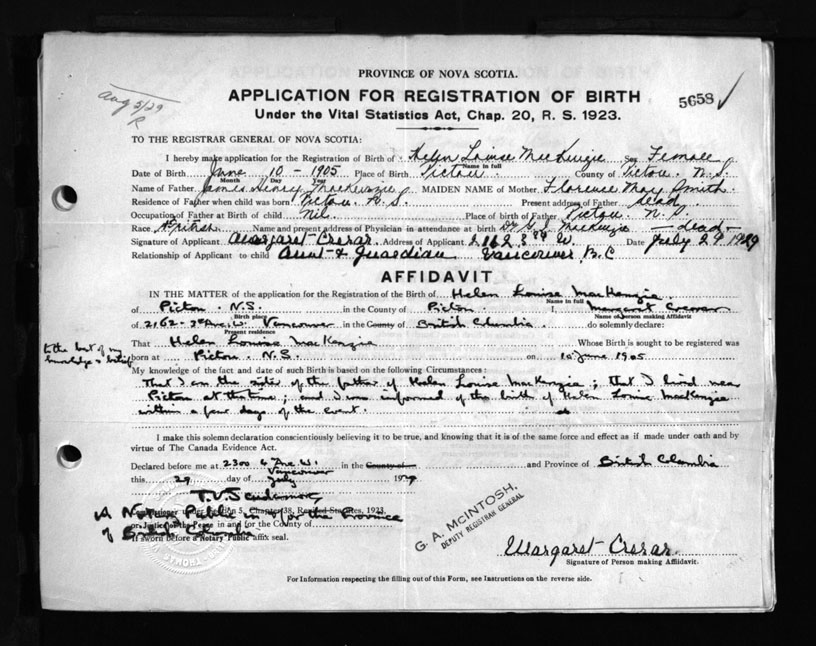 PROVINCE OF NOVA SCOTIA.
APPLICATION FOR REGISTRATION OF BIRTH
Aug 5/29
R
5658
Under the Vital Statistics Act, Chap. 20, R. S. 1923.
TO THE REGISTRAR GENERAL OF NOVA SCOTIA:
I hereby make application for the Registration of Birth of Helen Louise MacKenzie Sex Female
Name in full
Date of Birth June 10 - 1905 Place of Birth Pictou County of Pictou N.S.
Month Day Year
Name of Father James Henry MacKenzie MAIDEN NAME of Mother Florence May Smith
Residence of Father when child was born Pictou N.S. Present address of Father dead
Occupation of Father at Birth of child Nil Place of birth of Father Pictou N.S.
Race British Name and present address of Physician in attendance at birth Dr. MacKenzie - dead -
Signature of Applicant Margaret Crerar Address of Applicant 2162 3rd W. Date July 29 1929
Relationship of Applicant to child Aunt & Guardian Vancouver B.C
AFFIDAVIT
IN THE MATTER of the application for the Registration of the Birth of Helen Louise MacKenzie
Name in full
of Pictou N.S. in the County of Pictou I, Margaret Crerar
Birth place Name of person making Affidavit
of 2162-3rd Ave. W. Vancouver in the County of British Columbia do solemnly declare:
Present residence
to the best of my
knowledge & belief
That Helen Louise MacKenzie Whose Birth is sought to be registered was
born at Pictou N.S. on 10 June 1905
My knowledge of the fact and date of such Birth is based on the following Circumstances:
That I am the sister of the father of Helen Louise MacKenzie; that I lived near
Pictou at that time; and I was informed of the birth of Helen Louise MacKenzie
within a few days of the event.
I make this solemn declaration conscientiously believing it to be true, and knowing that it is of the same force and effect as if made under oath and by
virtue of The Canada Evidence Act.
Declared before me at 2300 4 Ave. W. Vancouver in the County of and Province of British Columbia
this 29 day of July 1929
T.V. Scudamore
A Notary Public in & for the Province
of British Columbia
Commissioner under Section 5, Chapter 38, Revised Statutes, 1923
or Justice for the Peace in and for the County of
If sworn before a Notary Public affix seal.
G. A. McINTOSH,
DEPUTY REGISTRAR GENERAL
Margaret Crerar
Signature of Person making Affidavit.
For Information respecting the filling out of this Form, see Instructions on the reverse side.